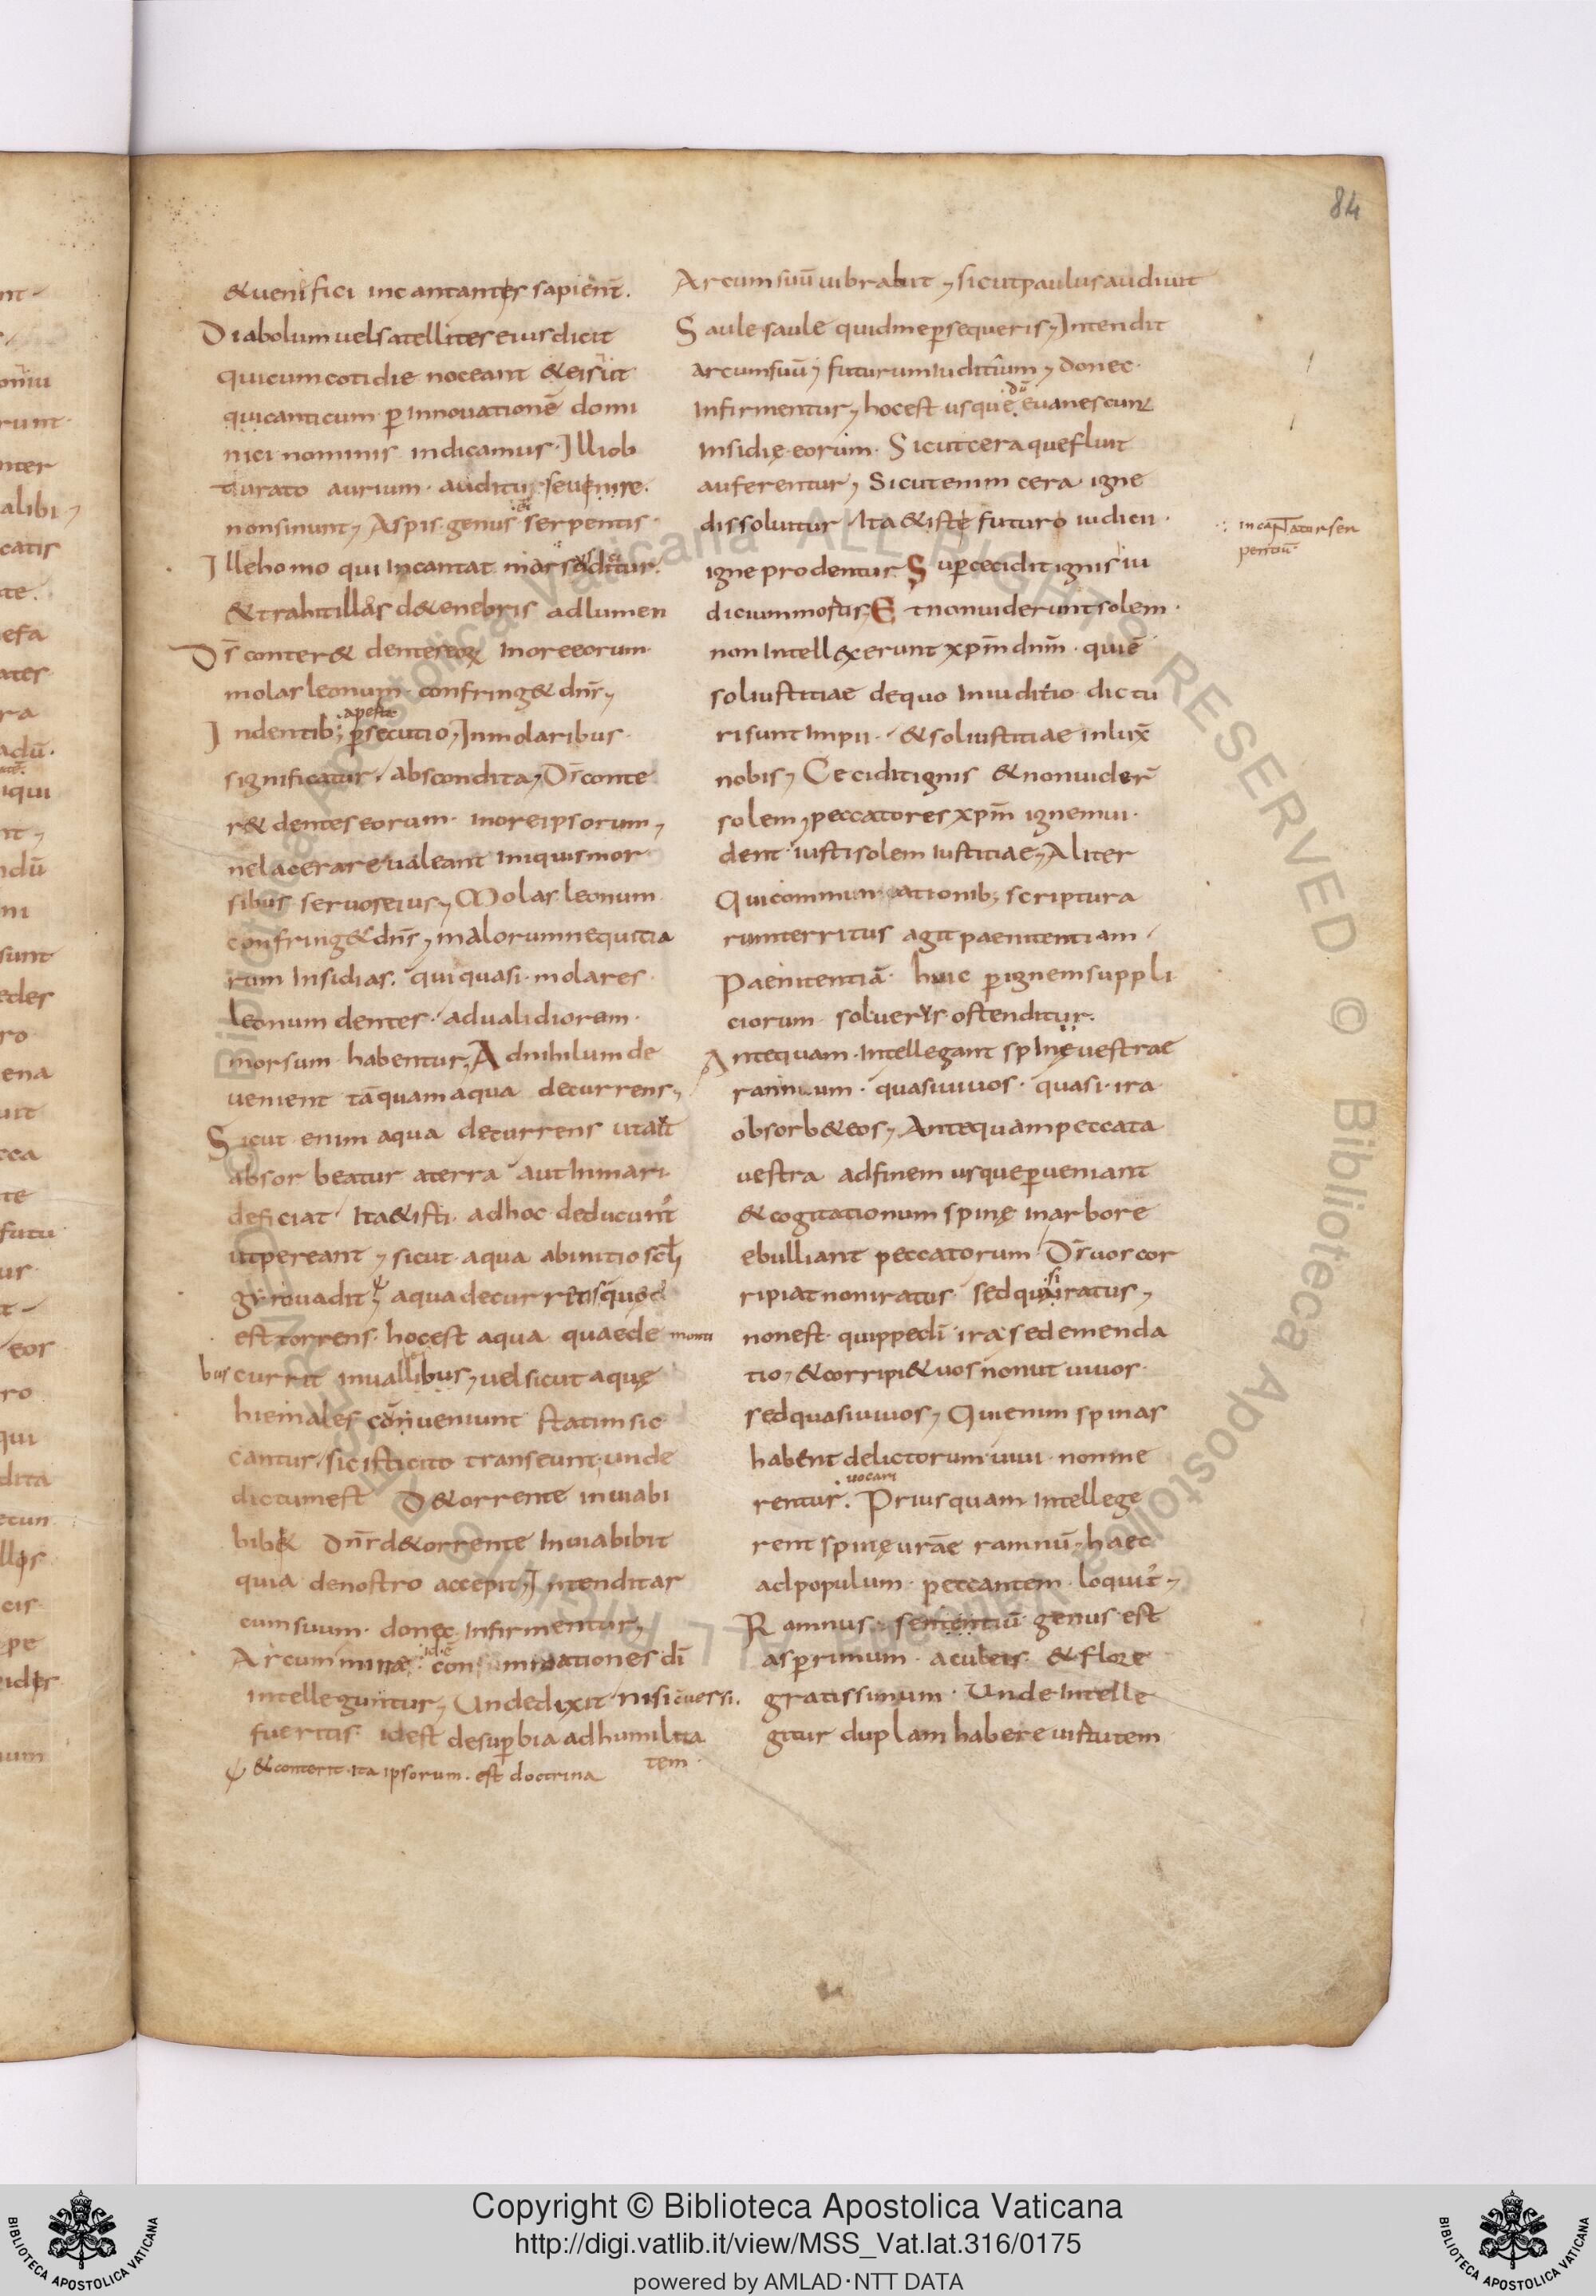 84
& uenifici incantantis sapient̄.
Diabolum uel satellites eius dicit
qui cum cotidie noceant & eis uĩt
qui canticum per innouationē domi
nici nominis indicamus. Illi ob
turato aurium. auditu se uenire.
non sinunt; Aspis. genus ē serpentis
Ille homo qui incantat marsus dicitur.
& trahit illas d& enebris ad lumen
D̄s conter& dentes eoꝝ in ore eorum.
molas leonum confring& dn̄s;
In dentib; aperta persecutio; In molaribus
significatur. abscondita; D̄s conte
r& dentes eorum. in ore ipsorum;
ne lacerare ualeant iniquis mor
sibus seruos eius; Molas leonum
confring& dn̄s; malorum nequitia
rum insidias. qui quasi molares
leonum dentes. ad ualidiorem.
morsum habentur; Ad nihilum de
uenient tāquam aqua decurrens;
Sicut enim aqua decurrens uitat
absorbeatur a terra aut in mari
deficiat. Ita & isti. ad hoc deducunt̃
ut pereant; sicut aqua ab initio
aqua decurrens que
est torrens. hoc est aqua quae de monti
bus currit in uallibus; uel sicut aquę
hiemales conueniunt statim sic
cantur. sic isti cito transeunt. unde
dictum est D& orrente in uia bi
bib& Dn̄s d& orrente in uia bibit
quia de nostro accepit; Intendit ar
cum suum. donec infirmentur;
Arcum minas. id ē consummationes dī
intelleguntur; Unde dixit nisi cuersi.
fueritis. id est de superbia ad humilita
tem
& conterit. ita ipsorum. est doctrina
Arcum suū uibrabit; sicut paulus audiuit
Saule saule quid me persequeris; Intendit
arcum suū; futurum iuditium; donec.
infirmentur; hoc est usque dū euanescunt
insidię eorum. Sicut cera que fluit
auferentur; Sicut enim cera igne
dissoluitur. Ita & iste futuro iudicii.
igne prodentur. Super cecidit ignis iu
dicium mortis; Et non uiderunt solem.
non intellexerunt xp̄m dn̄m. quiē
sol iustitiae de quo in iuditio dictu
ri sunt impii. & sol iustitiae inlux̄
nobis; Cecidit ignis & non uider̄
solem; peccatores xp̄m ignem ui.
dent. iusti solem iustitiae; Aliter
Qui communicationib; scriptura
rum territus agit paenitentiam.
Paenitentiā. huic per ignem suppli
ciorum solueris ostenditur.
Antequam. intellegant spinę uestrae
ramnum. quasi uiuos. quasi ira
obsorb& eos; Antequam peccata
uestra ad finem usque perueniant
& cogitationum spinę in arbore
ebulliant peccatorum D̄s uos cor
ripiat non iratus. sed quasi iratus;
non est. quippe dī ira; sed emenda
tio, & corripi& uos non ut uiuos.
sed quasi uiuos; Qui enim spinas
habent delictorum. uiui non me
rentur. uocari Priusquam intellege
rent spinę urāe ramnū. haec
ad populum. peccantem. loquit̃;
Ramnus. sententiū genus est
asperrimum. aculeis. & flore
gratissimum. Unde intelle
gitur duplam habere uirtutem
incantator ser
pentiū
Copyright © Biblioteca Apostolica Vaticana
http://digi.vatlib.it/view/MSS_Vat.lat.316/0175
powered by AMLAD·NTT DATA
BIBLIOTECA APOSTOLICA VATICANA
BIBLIOTECA APOSTOLICA VATICANA